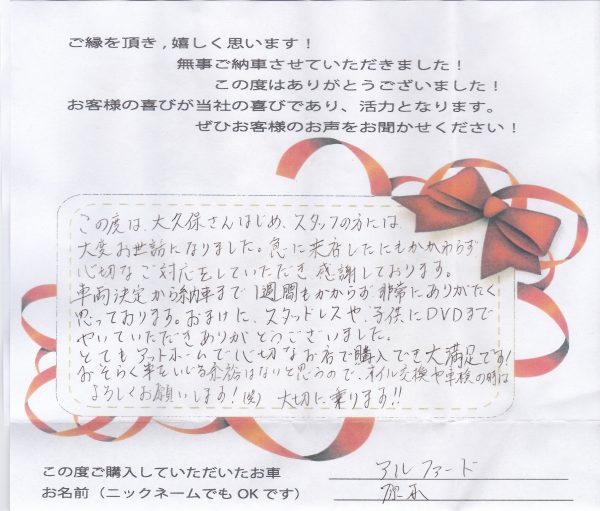 ご縁を頂き,嬉しく思います！
無事ご納車させていただきました！
この度はありがとうございました！
お客様の喜びが当社の喜びであり、活力となります。
ぜひお客様のお声をお聞かせください！
この度は、大久保さんはじめ、スタッフの方には
大変お世話になりました。急に来店したにもかかわらず
心切なご対応をしていただき感謝しております。
車両決定から納車まで1週間もかからず非常にありがたく
思っております。おまけに、スタッドレスや、子供にDVDまで
やいていただきありがとうございました。
とてもアットホームで心切なお店で購入でき大満足です！
おそらく車をいじる余裕はないと思うので、オイル交換や車検の時は
よろしくお願いします！(笑) 大切に乗ります!!
この度ご購入していただいたお車 アルファード
お名前（ニックネームでもOKです）